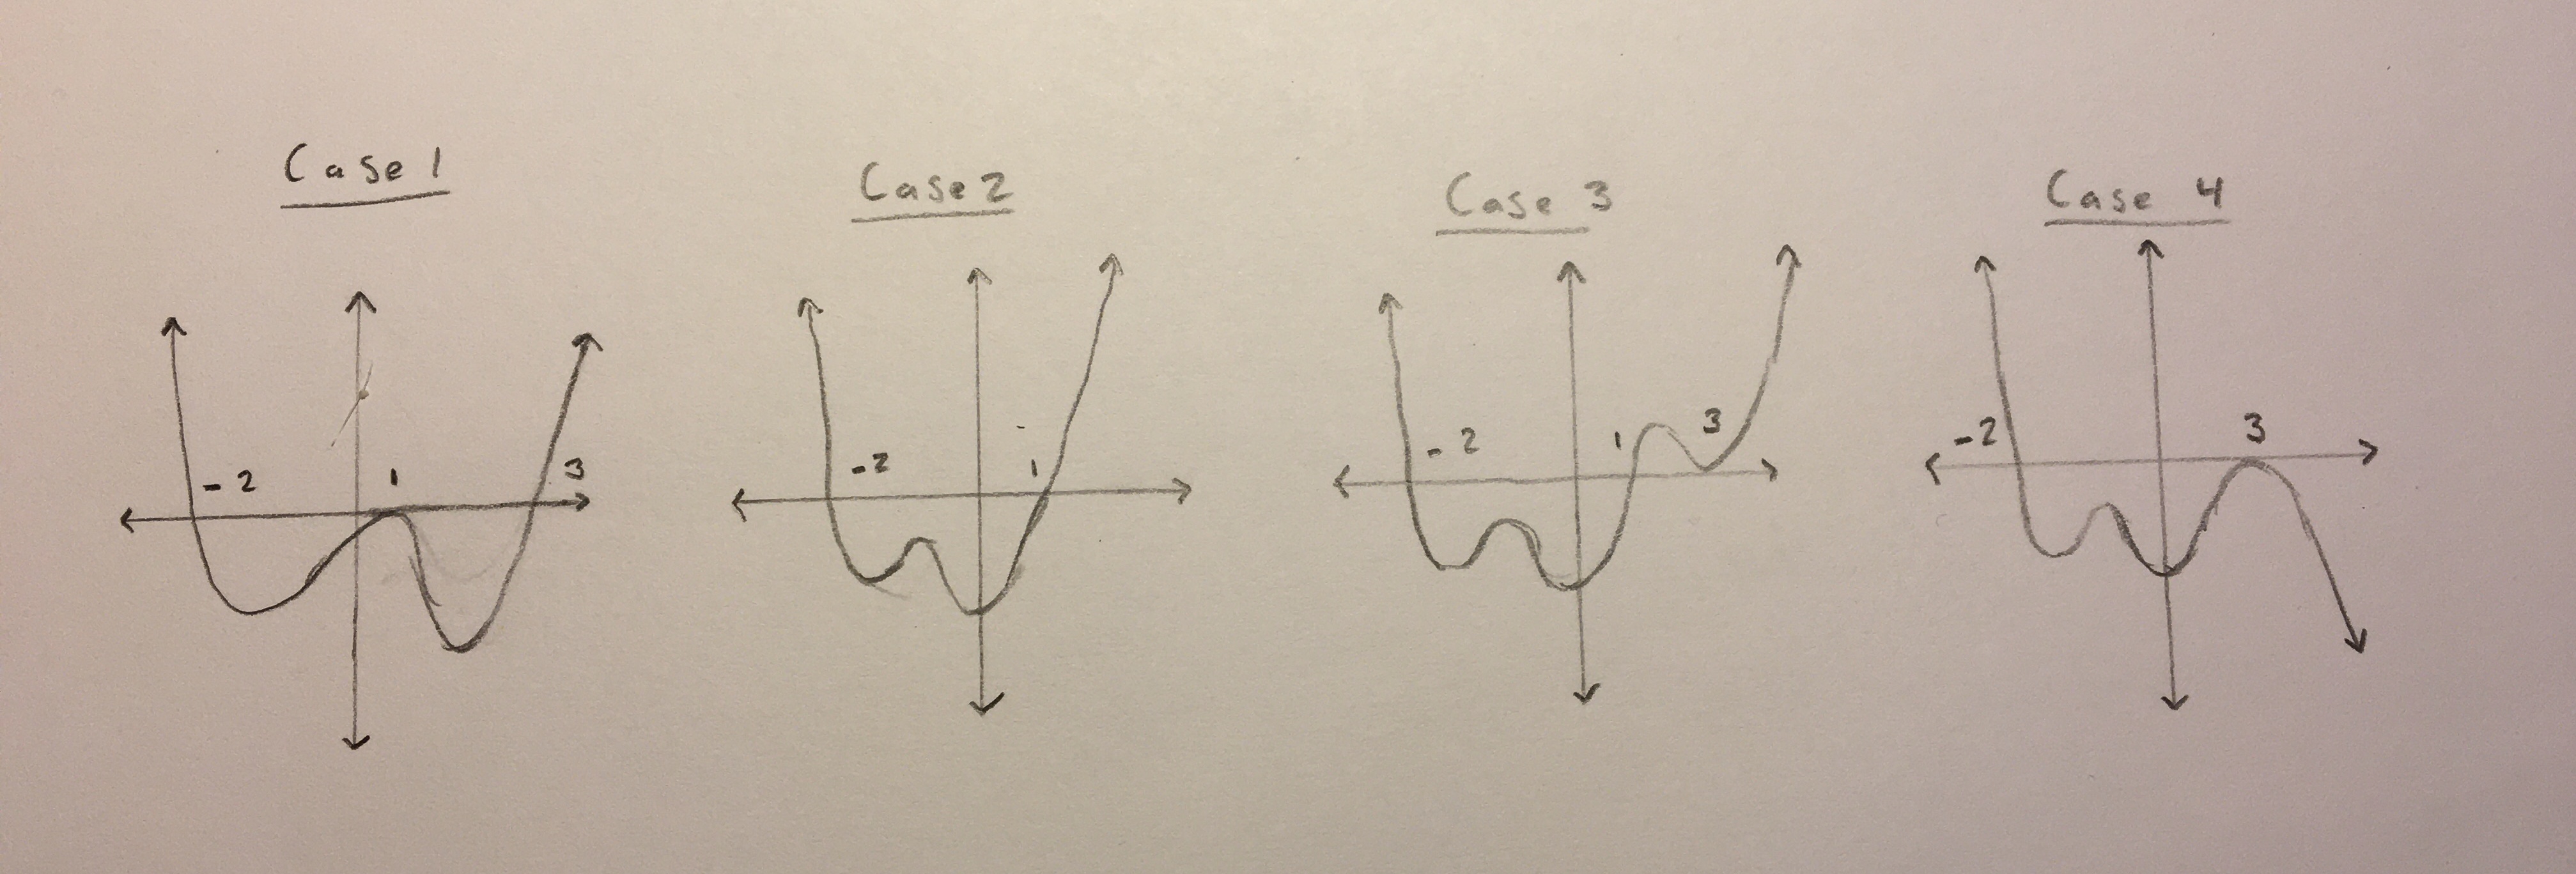 Case 1
-2 1 3
Case 2
-2 1
Case 3
-2 1 3
Case 4
-2 3